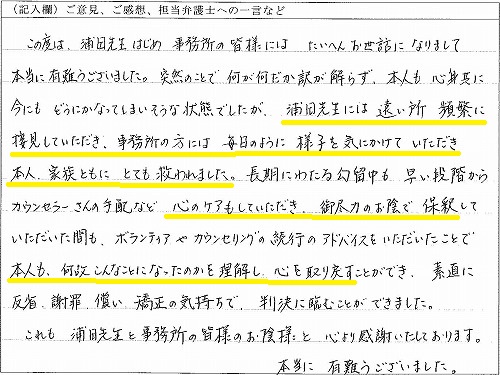 （記入欄）ご意見、ご感想、担当弁護士への一言など
この度は、浦田先生はじめ 事務所の皆様には たいへんお世話になりまして
本当に有難うございました。突然のことで 何が何だか訳が解らず、本人も 心身共に
今にも どうにかなってしまいそうな状態でしたが、浦田先生には 遠い所 頻繁に
接見していただき、事務所の方には 毎日のように 様子を気にかけて いただき
本人、家族ともに とても 救われました。長期にわたる勾留中も 早い段階から
カウンセラーさんの手配など 心のケアもしていただき、御尽力のお陰で 保釈して
いただいた間も、ボランティアやカウンセリングの続行のアドバイスをいただいたことで
本人も、何故こんなことになったのかを理解し、心を取り戻すことができ、素直に
反省、謝罪、償い、矯正の気持ちで、判決に臨むことができました。
これも 浦田先生と事務所の皆様のお陰様と 心より感謝いたしております。
本当に 有難うございました。